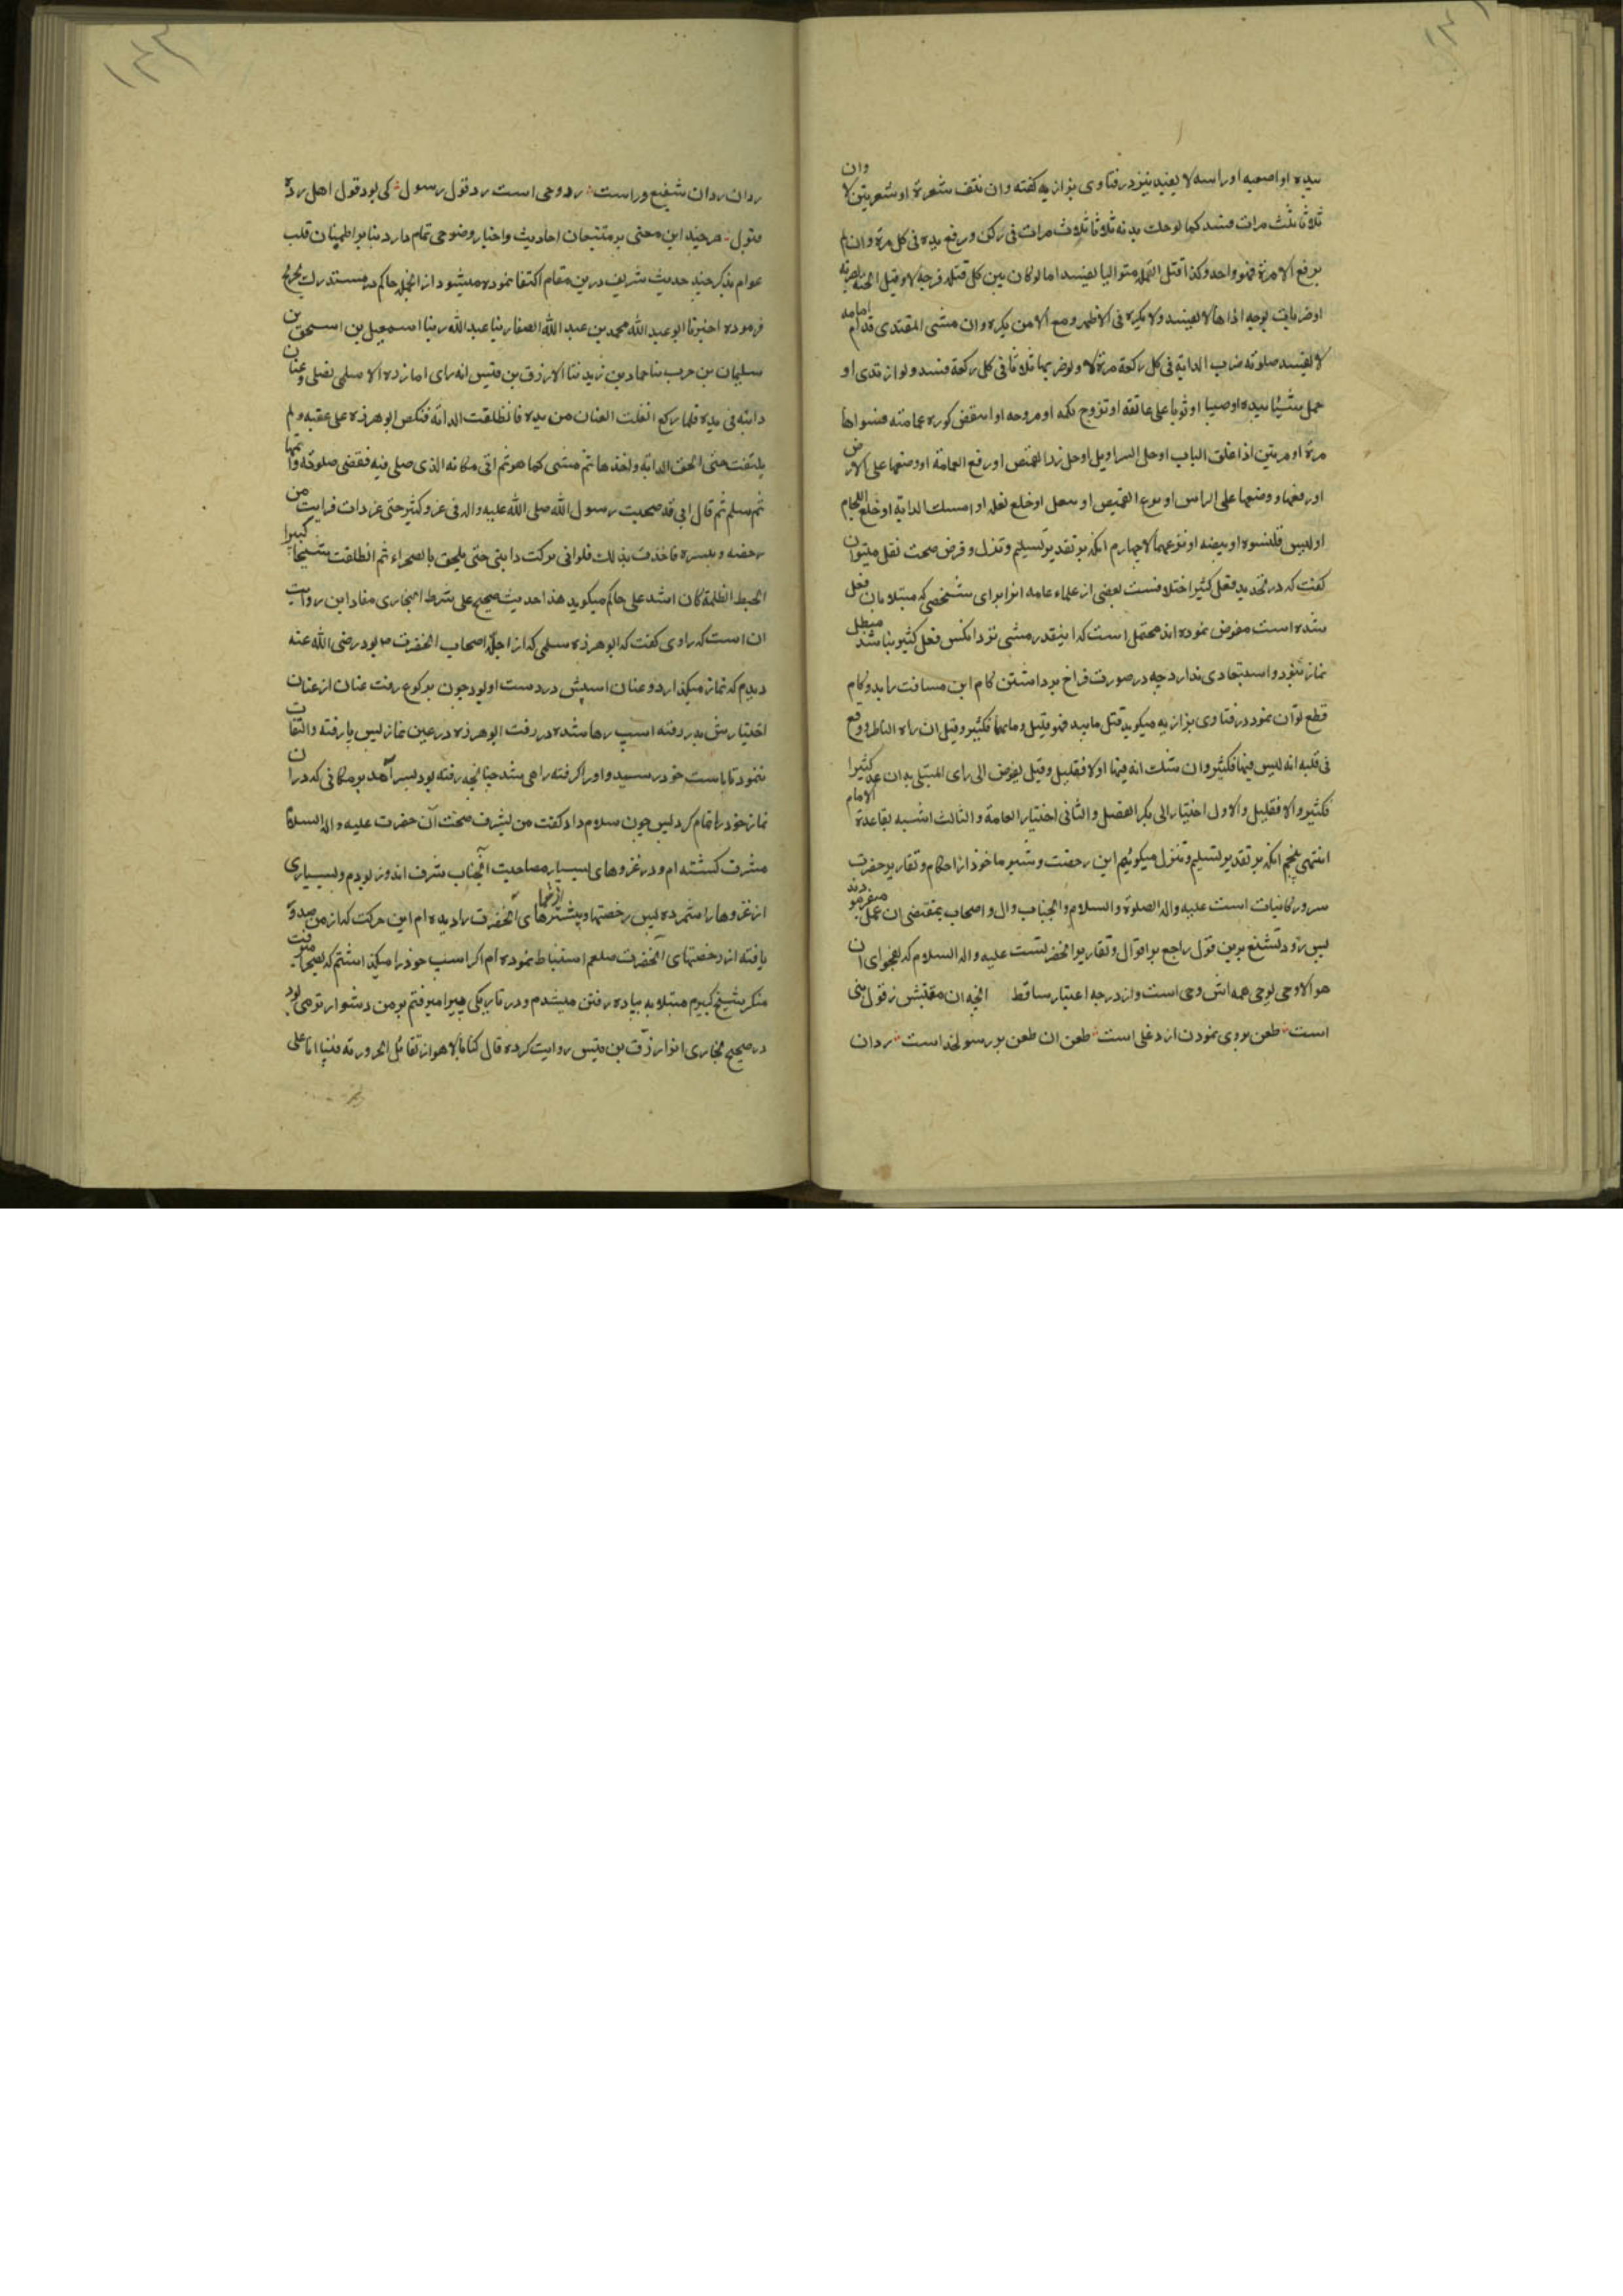 بیده او اصبعیه او راسه لا یفسد نیز در فتاوی بزازیه گفته وان نتف شعرة او شعرتین لا وان
ثلاثا ثلث مرات فسد کما لو حک بدنه ثلاثا ثلاث مرات فی رکن ورفع یده فی کل مرة وان لم
یرفع الا مرة فهو واحد وکذا قتل القمل متوالیا یفسد اما لو کان بین کل قتله فرجة لا وقیل
او ضربات لوجه اذاها لا یفسد ولا یکره فی الاظهر ومع الامن یکره وان مشی المقتدی قدام امامه
لا یفسد صلوته ضرب الدابة فی کل رکعة مرة لا ولو ضربها ثلاثا فی کل رکعة فسد ولو ارتدی او
حمل شیئا بیده او صبیا او ثوبا علی عاتقه او تروح بکمه او مروحه او انتقض کوره عمامته فسواها
مرة او مرتین اذا غلق الباب او حل السراویل او حل زر القمیص او رفع العمامة او وضعها علی الارض
او رفعها و وضعها علی الراس او نزع القمیص او نعل او خلع نعله او امسک الدابة او خلع اللجام
او لبس قلنسوه او بیضه او نزعهما لا چهارم آنکه بر تقدیر تسلیم وتنزل و فرض صحت نقل میتوان
گفت که در تحدید فعل کثیر اختلافست بعضی از علماء عامه انرا برای شخصی که مبتلا بان فعل
شده است مفوض نموده اند محتمل است که اینقدر مشی نزد انکس فعل کثیر نباشد مبطل
نماز نبود و استبعادی ندارد چه در صورت فراخ برداشتن کام این مسافت را بدو کام
قطع توان نمود در فتاوی بزازیه میگوید قتل ما بید فهو قلیل وما بهما فکثیر وقیل ان راه الناظر ووقع
فی قلبه انه لیس فیها فکثیر وان شک انه فیها او لا فقلیل وقیل یفوض الی رای المبتلی به ان عده کثیرا
فکثیر والا فقلیل والاول اختیار ابی بکر الفضل والثانی اختیار العامة والثالث اشبه بقاعدة الامام
انتهی پنجم آنکه بر تقدیر تسلیم وتنزل میگوئیم این رخصت وتیسیر ماخوذ از احکام وتقاریر حضرت
سرور کائنات است علیه واله الصلوة والسلام وانجناب وال و اصحاب بمقتضی ان عمل میفرمودند
پس رد و تشنیع برین قول راجع بر اقوال وتقاریر انحضرتست علیه واله السلام که بفحوای ان
هو الا وحی یوحی همه اش وحی است واز درجه اعتبار ساقط انچه ان مقتبس ز قول نبی
است طعن بروی نمودن از دغلی است طعن ان طعن بر رسول خداست رد ان
رد ان رد ان شفیع وراست رد وحی است رد قول رسول کی بود قول اهل رده
قبول هر چند این معنی بر متتبعان احادیث واخبار وضوحی تمام دارد بنا بر اطمینان قلب
عوام بذکر چند حدیث شریف درین مقام اکتفا نموده میشود از انجمله حاکم در مستدرک تخریج
فرموده اخبرنا ابو عبد الله محمد بن عبد الله الصفار ثنا عبد الله ثنا اسمعیل بن اسحق بن
سلیمان بن حرب ثنا حماد بن زید ثنا الارزق بن قیس انه رای ابا برزه الاسلمی یصلی وعنان
دابته فی یده فلما رکع انفلت العنان من یده فانطلقت الدابة فنکص ابو هرزه علی عقبه ولم
یلتفت حتی الحق الدابة واخذها ثم مشی کما هو ثم اتی مکانه الذی صلی فیه فقضی صلوته واتمها
ثم سلم ثم قال انی قد صحبت رسول الله صلی الله علیه واله فی غزو کثیر حتی عد غزوات فرایت من
رخصه ویسره فاخذت بذلک فلو انی ترکت دابتی حتی یلحق بالصحراء ثم انطلقت شیخا کبیرا
اخبط الظلمة کان اشد علی حاکم میگوید هذا حدیث صحیح علی شرط البخاری مفاد این روایت
ان است که راوی گفت که ابو هرزه سلمی که از اجلّه اصحاب انحضرت ص بود رضی الله عنه
دیدم که نماز میگذارد و عنان اسپش در دست او بود چون برکوع رفت عنان از عنان
اختیارش بدر رفته اسپ رها شده در رفت ابو هرزه در عین نماز پس پا رفته والتفات
ننمود تا باسپ خود رسید و او را گرفته راهی شد چنانچه رفته بود پس آمد بر مکانی که در آن
نماز خود را تمام کرد پس چون سلام داد گفت من بشرف صحبت آن حضرت علیه و اله السلام
مشرف گشته ام و در غزوهای بسیار مصاحبت آنجناب شرف اندوز بودم و بسیاری
از غزوها را شمرده پس رخصتها و تیسیرهای آنحضرت را دیده ام این حرکت که از من صدور
یافته از رخصتهای آنحضرت صلعم استنباط نموده ام اگر اسپ خود را میگذاشتم که بصحرا میرفت
منکه شیخ کبیرم مبتلا به پیاده رفتن میشدم و در تاریکی بیراه میرفتم بر من دشوارتر می بود
در صحیح بخاری از ازرق بن قیس روایت کرده قال کنا بالاهواز نقاتل الحروریه فبینا انا علی